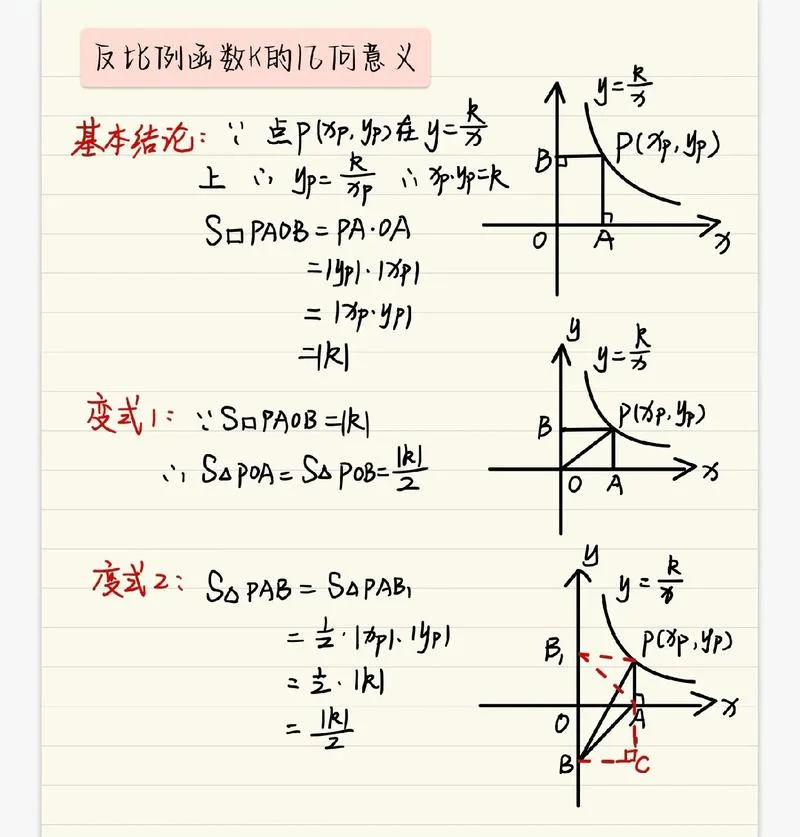 反比例函数K的几何意义
基本结论: ∵ 点P(xp, yp)在 y=k/x
上 ∴ yp=k/xp ∴ xp·yp=k
S□PAOB=PA·OA
=|yp|·|xp|
=|xp·yp|
=|k|
y=k/x
P(xp, yp)
B
O
A
x
变式1: ∵S□PAOB=|k|
∴ S△POA=S△POB=|k|/2
y
y=k/x
P(xp, yp)
B
O
A
x
变式2: S△PAB=S△PAB₁
=1/2·|xp|·|yp|
=1/2·|k|
=|k|/2
y
y=k/x
P(xp, yp)
B₁
O
A
x
B
C